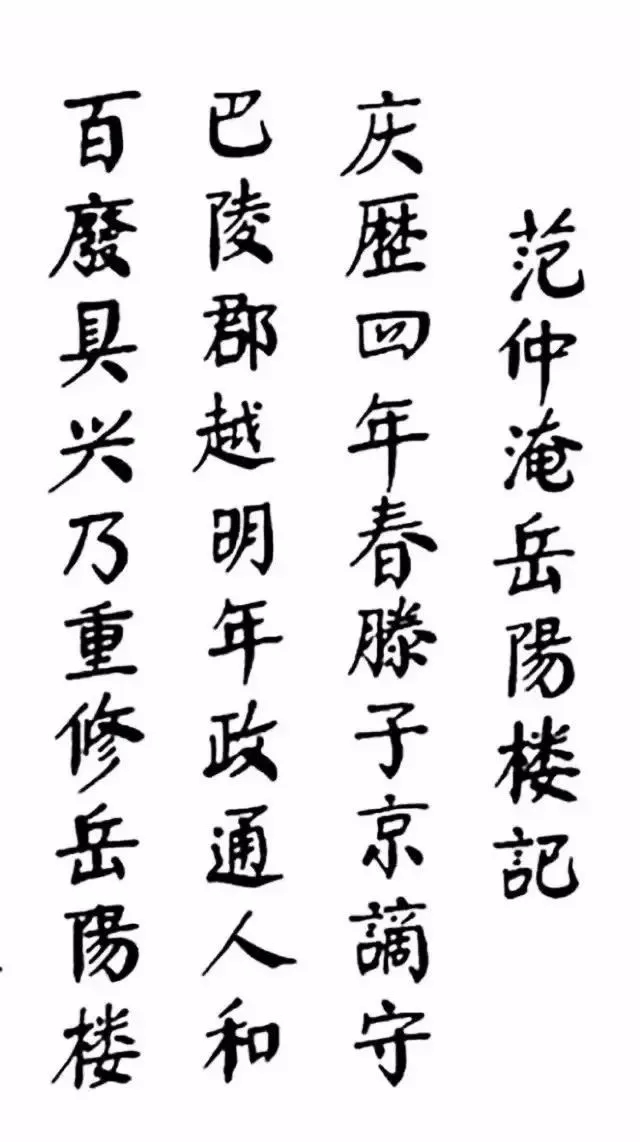 范仲淹岳陽楼記
庆歴四年春滕子京謫守
巴陵郡越明年政通人和
百廢具兴乃重修岳陽楼